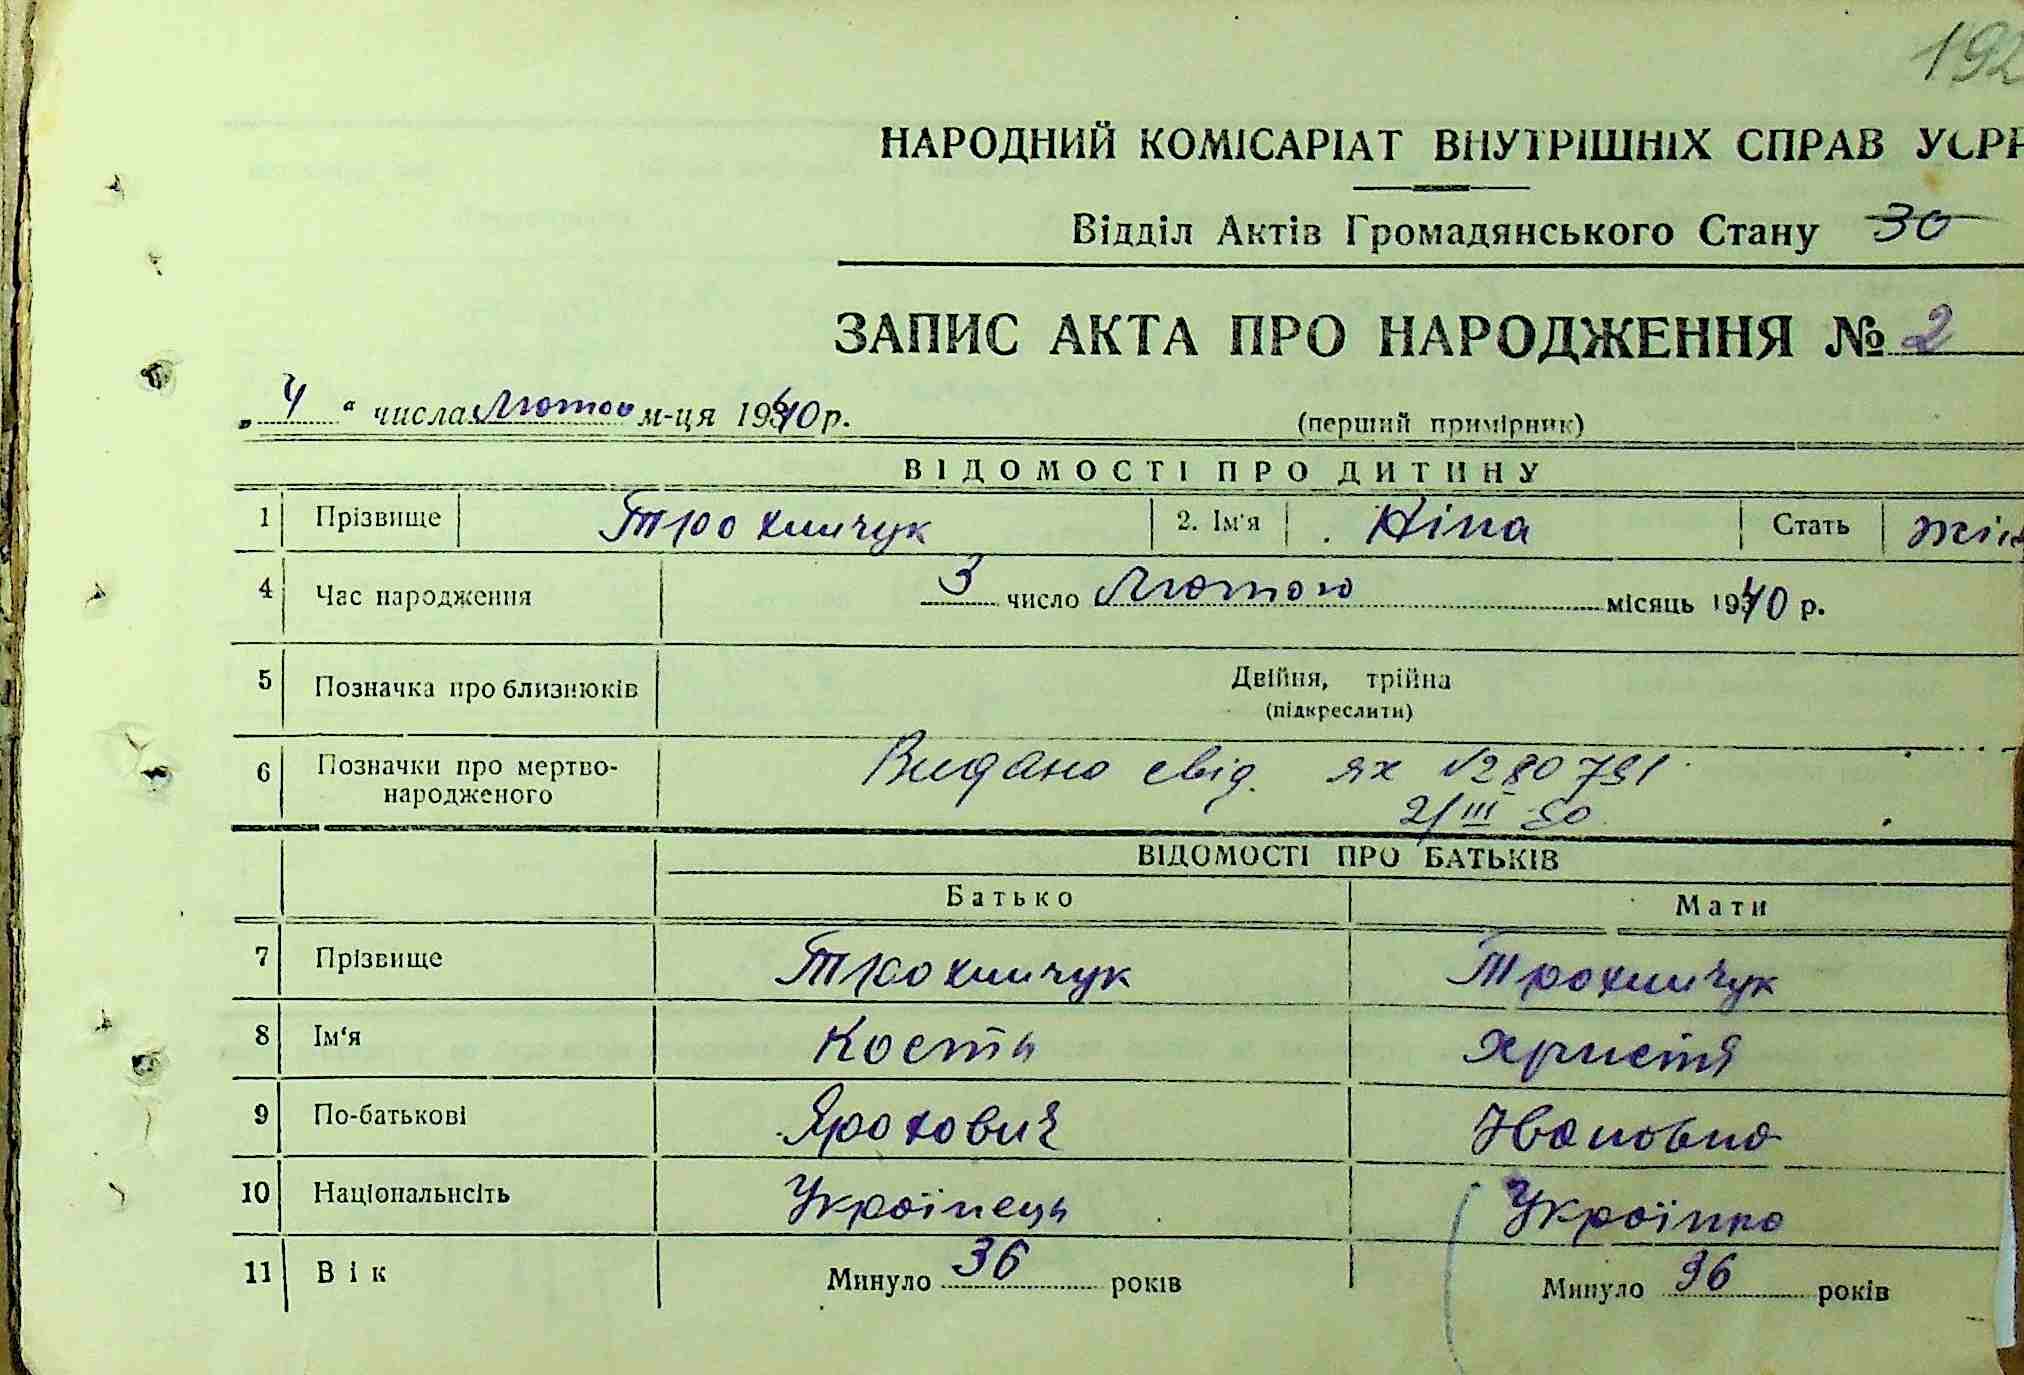 192
НАРОДНИЙ КОМІСАРІАТ ВНУТРІШНІХ СПРАВ УСРР
Відділ Актів Громадянського Стану
ЗАПИС АКТА ПРО НАРОДЖЕННЯ № 2
„ 4 “ числа Лютого м-ця 1940 р. (перший примірник)
ВІДОМОСТІ ПРО ДИТИНУ
1 Прізвище Трохимчук 2. Ім'я Ніна Стать жін
4 Час народження 3 число Лютого місяць 1940 р.
5 Позначка про близнюків Двійня, трійна
(підкреслити)
6 Позначки про мертво- Видано свід. ях № 280791
народженого 21/III 50
ВІДОМОСТІ ПРО БАТЬКІВ
Батько Мати
7 Прізвище Трохимчук Трохимчук
8 Ім'я Кость Христя
9 По-батькові Ярохович Івановна
10 Національнсіть Українець Українка
11 Вік Минуло 36 років Минуло 36 років